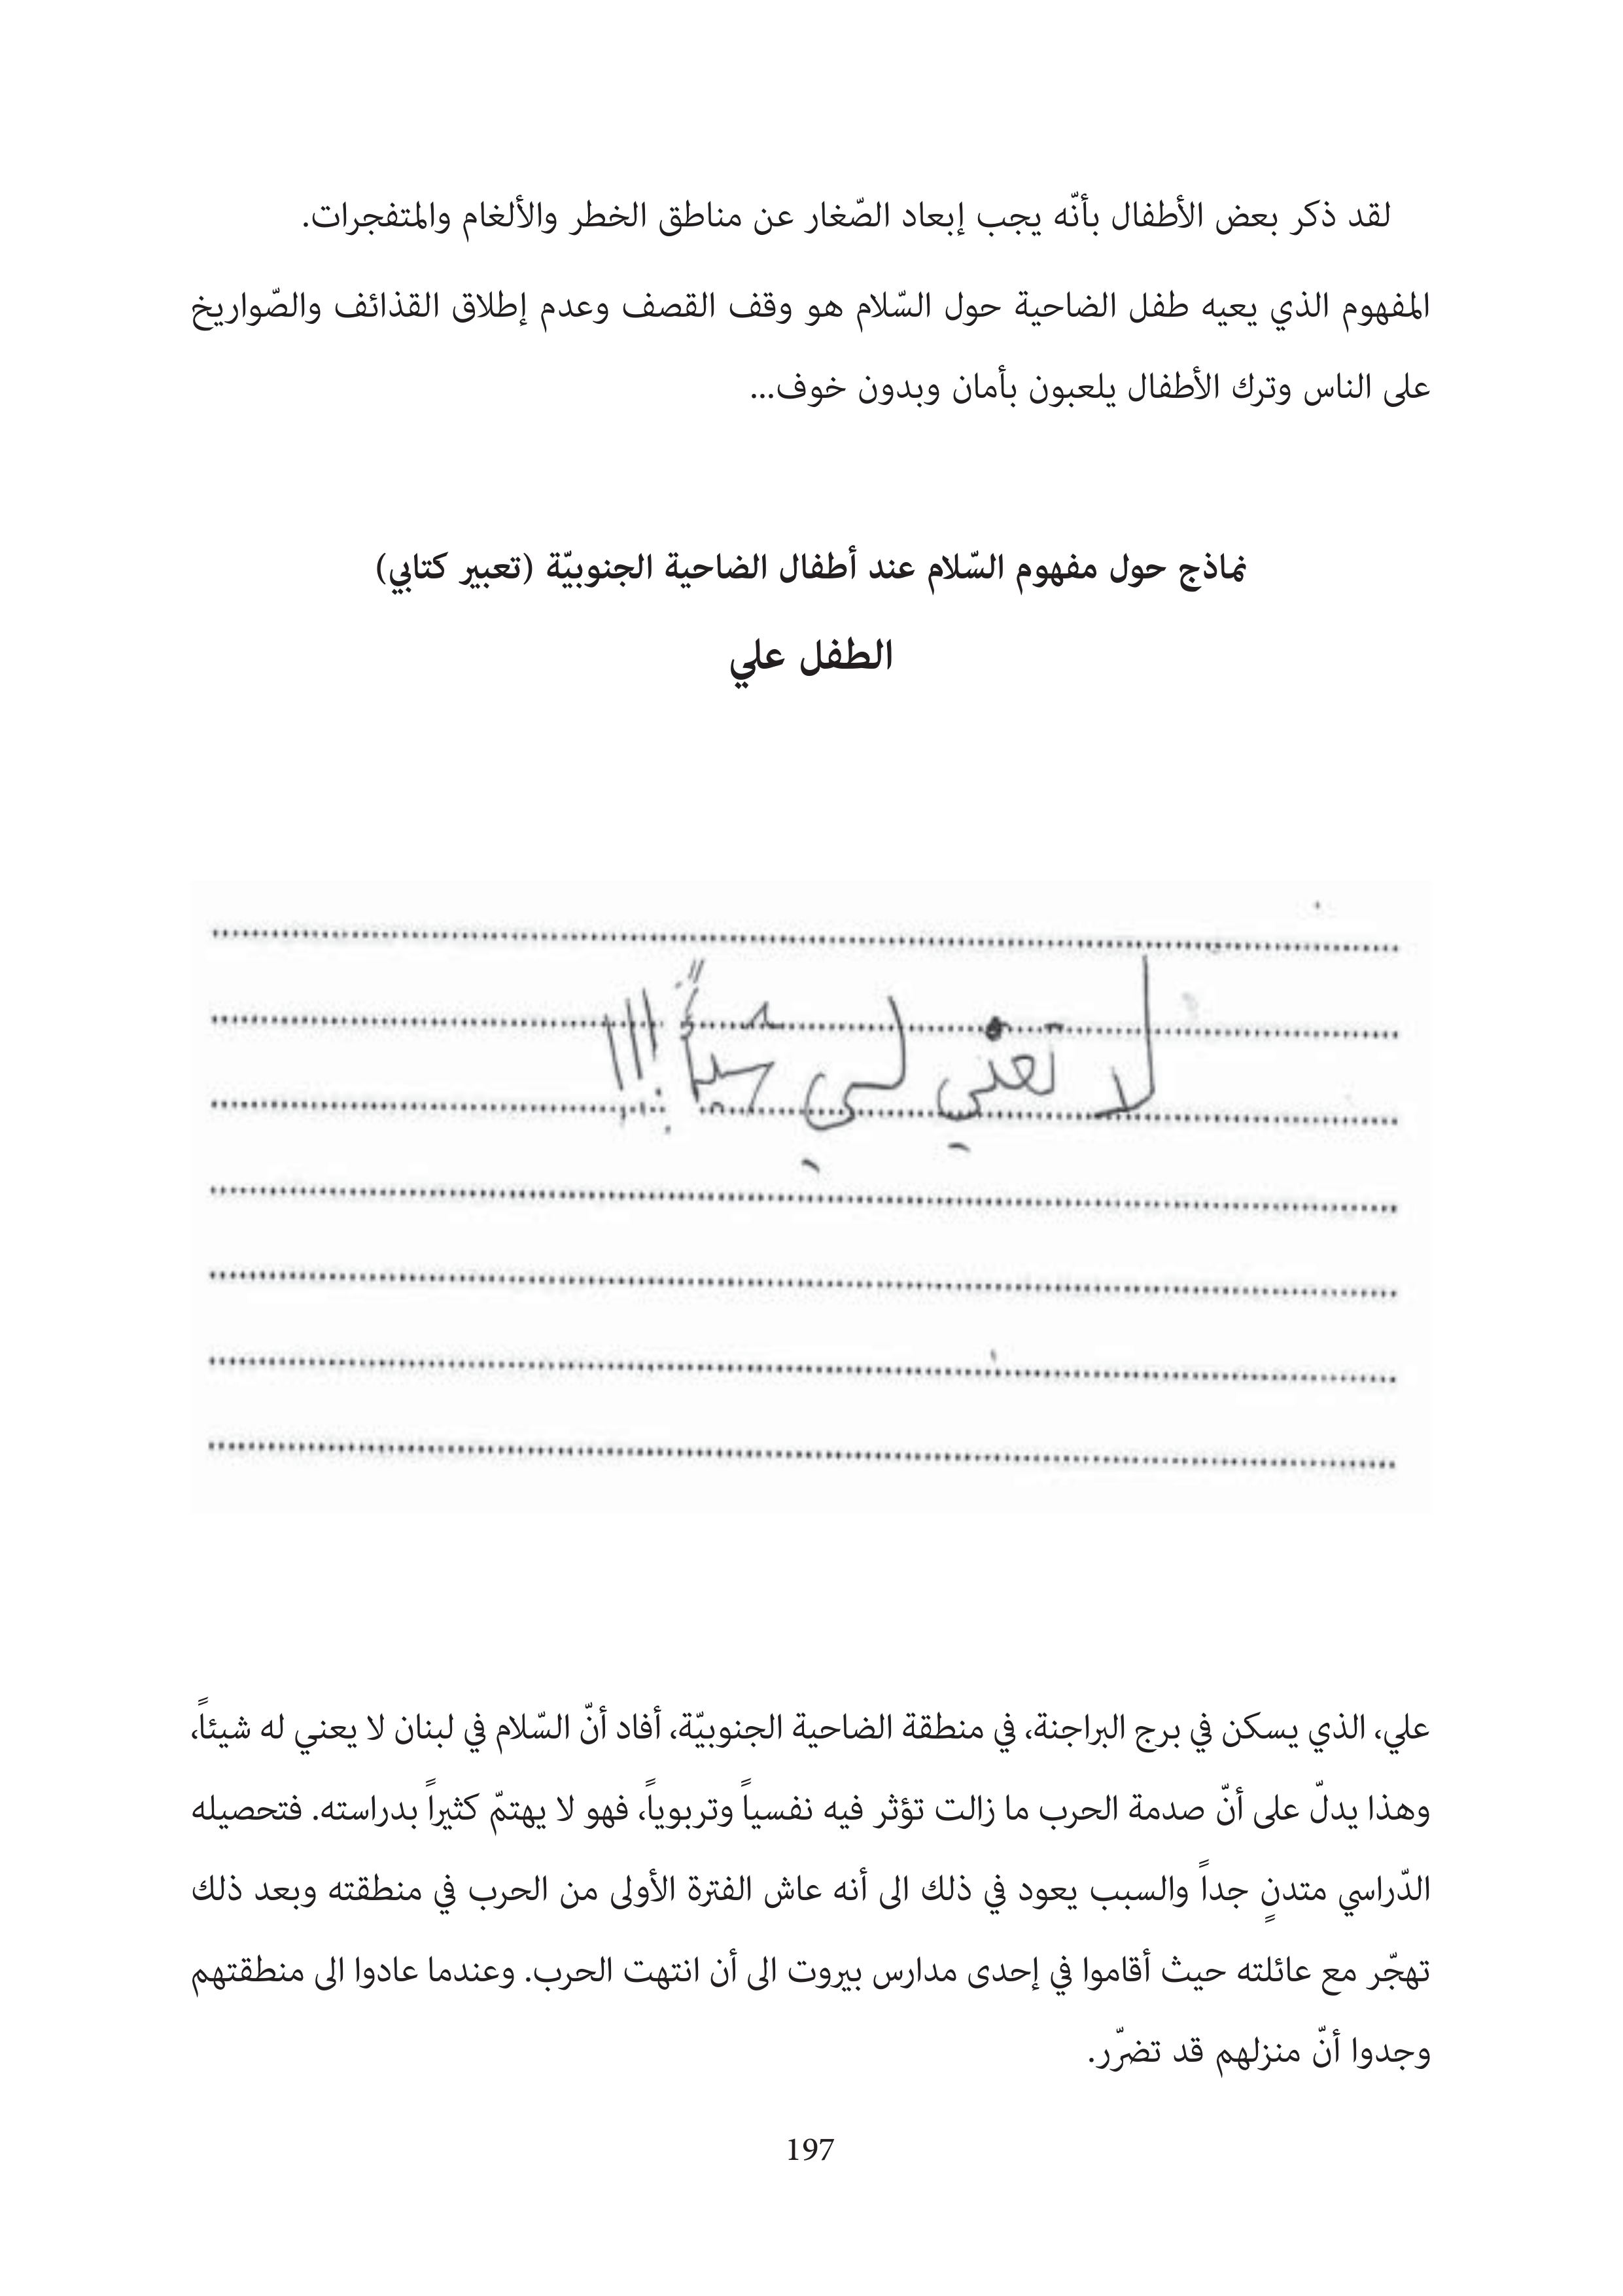 لقد ذكر بعض الأطفال بأنّه يجب إبعاد الصّغار عن مناطق الخطر والألغام والمتفجرات.
المفهوم الذي يعيه طفل الضاحية حول السّلام هو وقف القصف وعدم إطلاق القذائف والصّواريخ
على الناس وترك الأطفال يلعبون بأمان وبدون خوف...
نماذج حول مفهوم السّلام عند أطفال الضاحية الجنوبيّة (تعبير كتابي)
الطفل علي
لا تعني لي شيئاً !!!
علي، الذي يسكن في برج البراجنة، في منطقة الضاحية الجنوبيّة، أفاد أنّ السّلام في لبنان لا يعني له شيئاً،
وهذا يدلّ على أنّ صدمة الحرب ما زالت تؤثر فيه نفسياً وتربوياً، فهو لا يهتمّ كثيراً بدراسته. فتحصيله
الدّراسي متدنٍ جداً والسبب يعود في ذلك الى أنه عاش الفترة الأولى من الحرب في منطقته وبعد ذلك
تهجّر مع عائلته حيث أقاموا في إحدى مدارس بيروت الى أن انتهت الحرب. وعندما عادوا الى منطقتهم
وجدوا أنّ منزلهم قد تضرّر.
197